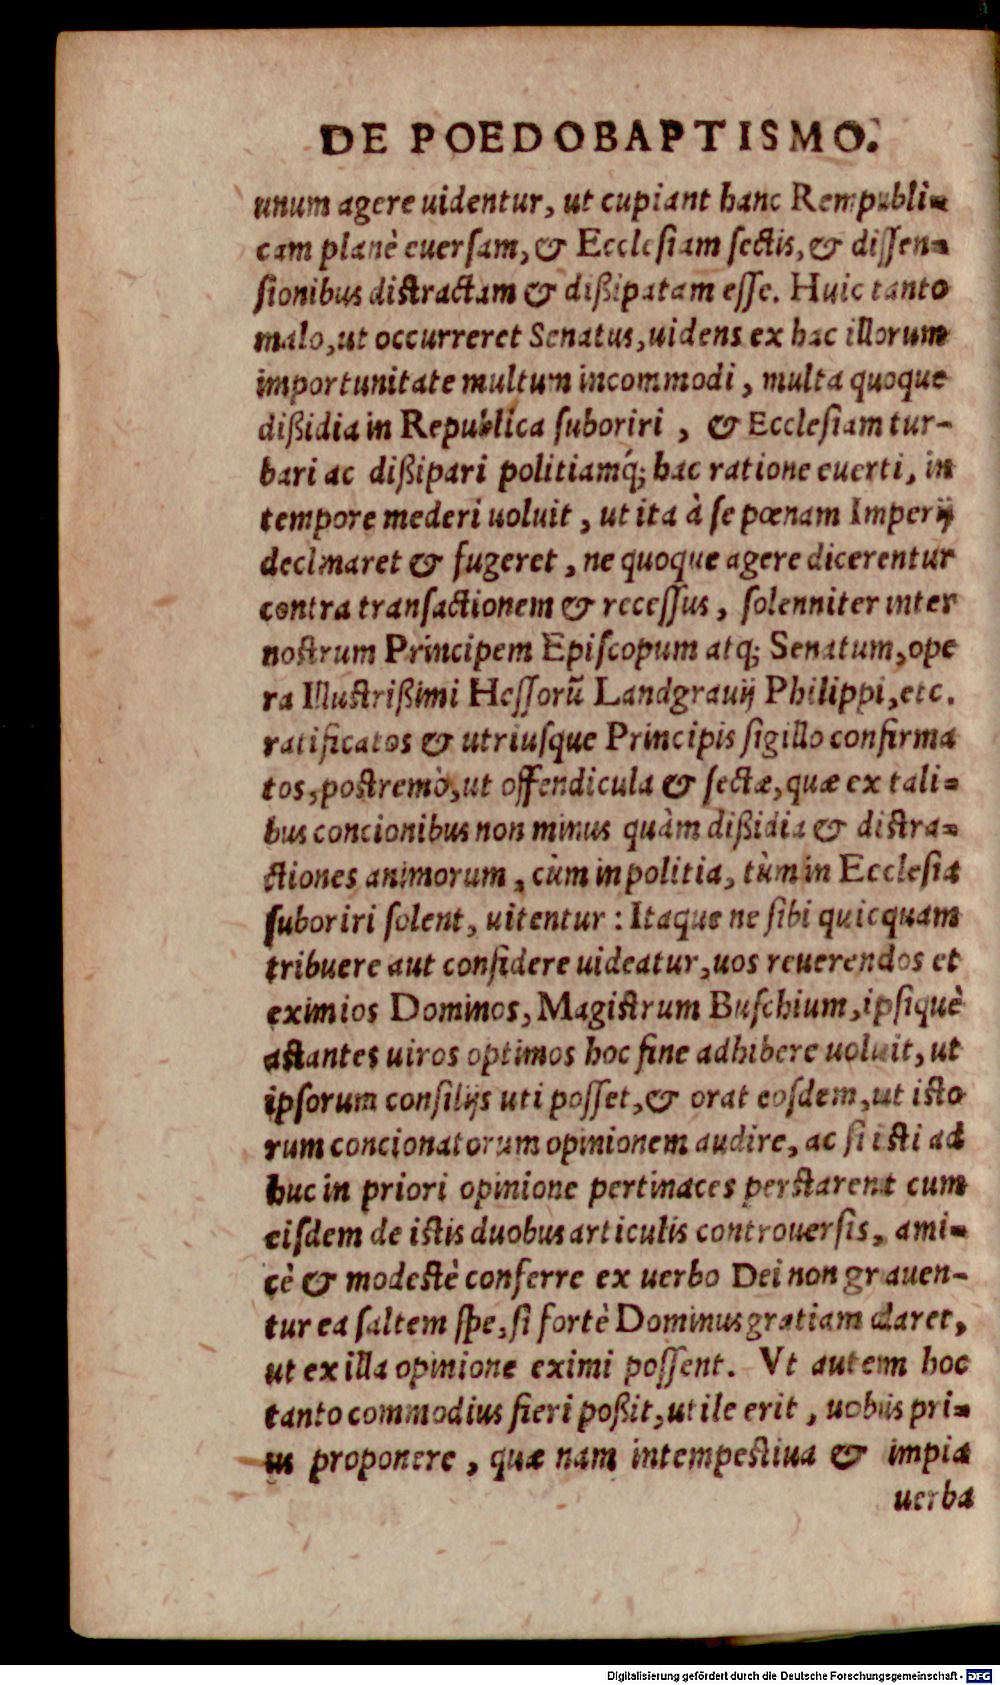 DE POEDOBAPTISMO.
unum agere uidentur, ut cupiant hanc Rempubli=
cam planè euersam, & Ecclesiam sectis, & dissen=
sionibus distractam & dißipatam esse. Huic tanto
malo, ut occurreret Senatus, uidens ex hac illorum
importunitate multum incommodi, multa quoque
dißidia in Republica suboriri, & Ecclesiam tur-
bari ac dißipari politiamq́; hac ratione euerti, in
tempore mederi uoluit, ut ita à se pœnam Imperij
declinaret & fugeret, ne quoque agere dicerentur
contra transactionem & recessus, solenniter inter
nostrum Principem Episcopum atq; Senatum, ope
ra Illustrißimi Hessorū Landgrauij Philippi, etc.
ratificatos & utriusque Principis sigillo confirma
tos, postremò, ut offendicula & sectæ, quæ ex tali=
bus concionibus non minus quàm dißidia & distra=
ctiones animorum, cùm in politia, tùm in Ecclesia
suboriri solent, uitentur: Itaque ne sibi quicquam
tribuere aut confidere uideatur, uos reuerendos et
eximios Dominos, Magistrum Buschium, ipsiquè
astantes uiros optimos hoc fine adhibere uoluit, ut
ipsorum consilijs uti posset, & orat eosdem, ut isto
rum concionatorum opinionem audire, ac si isti ad
huc in priori opinione pertinaces perstarent cum
eisdem de istis duobus articulis controuersis, ami=
cè & modestè conferre ex uerbo Dei non grauen-
tur ea saltem spe, si fortè Dominus gratiam daret,
ut ex illa opinione eximi possent. Vt autem hoc
tanto commodius fieri poßit, utile erit, uobis pri=
us proponere, quæ nam intempestiua & impia
uerba
Digitalisierung gefördert durch die Deutsche Forschungsgemeinschaft - DFG